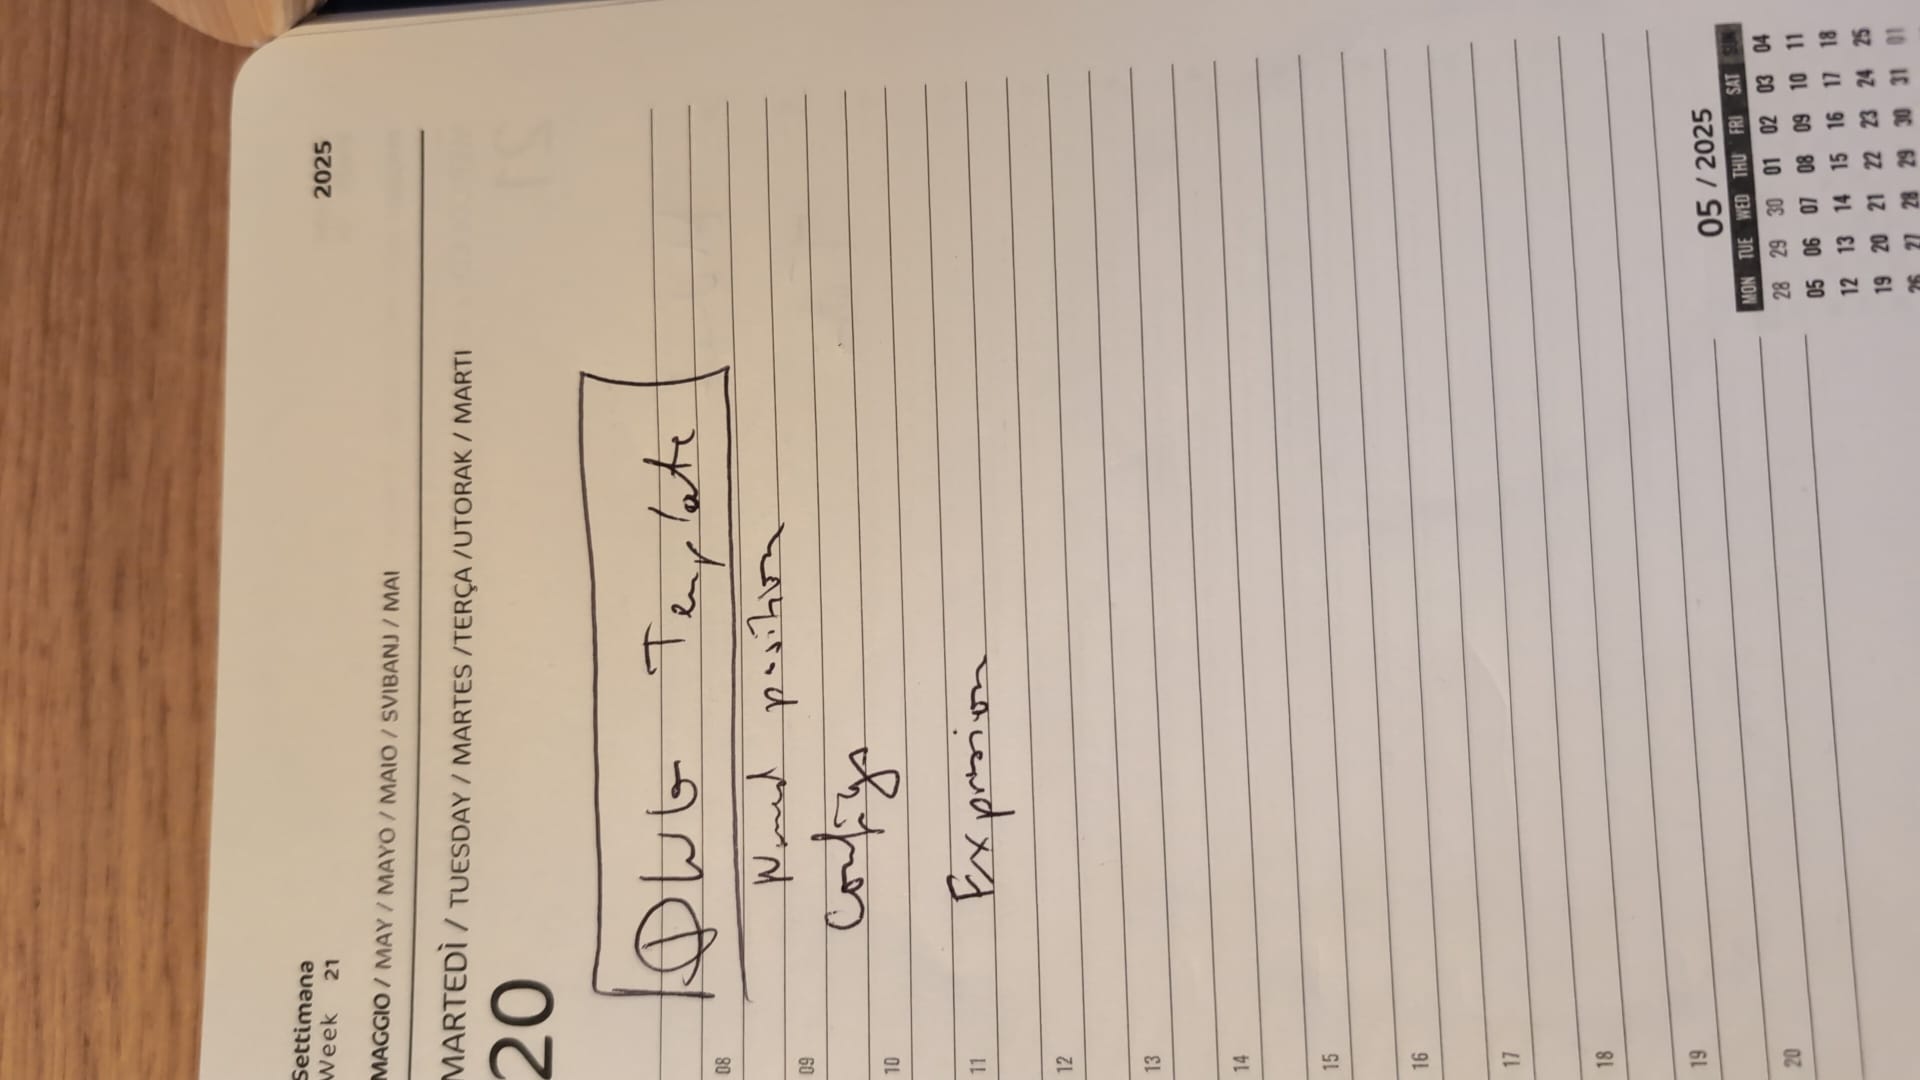 Settimana
Week 21
2025
MAGGIO / MAY / MAYO / MAIO / SVIBANJ / MAI
MARTEDÌ / TUESDAY / MARTES /TERÇA /UTORAK / MARTI
20
DWG Template
08
position
09
Configs
10
11
Expresion
12
13
14
15
16
17
18
19
20
05 / 2025
MON TUE WED THU FRI SAT SUN
28 29 30 01 02 03 04
05 06 07 08 09 10 11
12 13 14 15 16 17 18
19 20 21 22 23 24 25
26 27 28 29 30 31 01